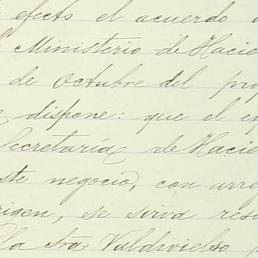 efects el acuerdo
Ministerio de Hacie
de Octubre del pro
dispone: que el e
Secretaría de Hacie
ste negocio, con arre
rigen, se sirva res
la Sra Valdivielso